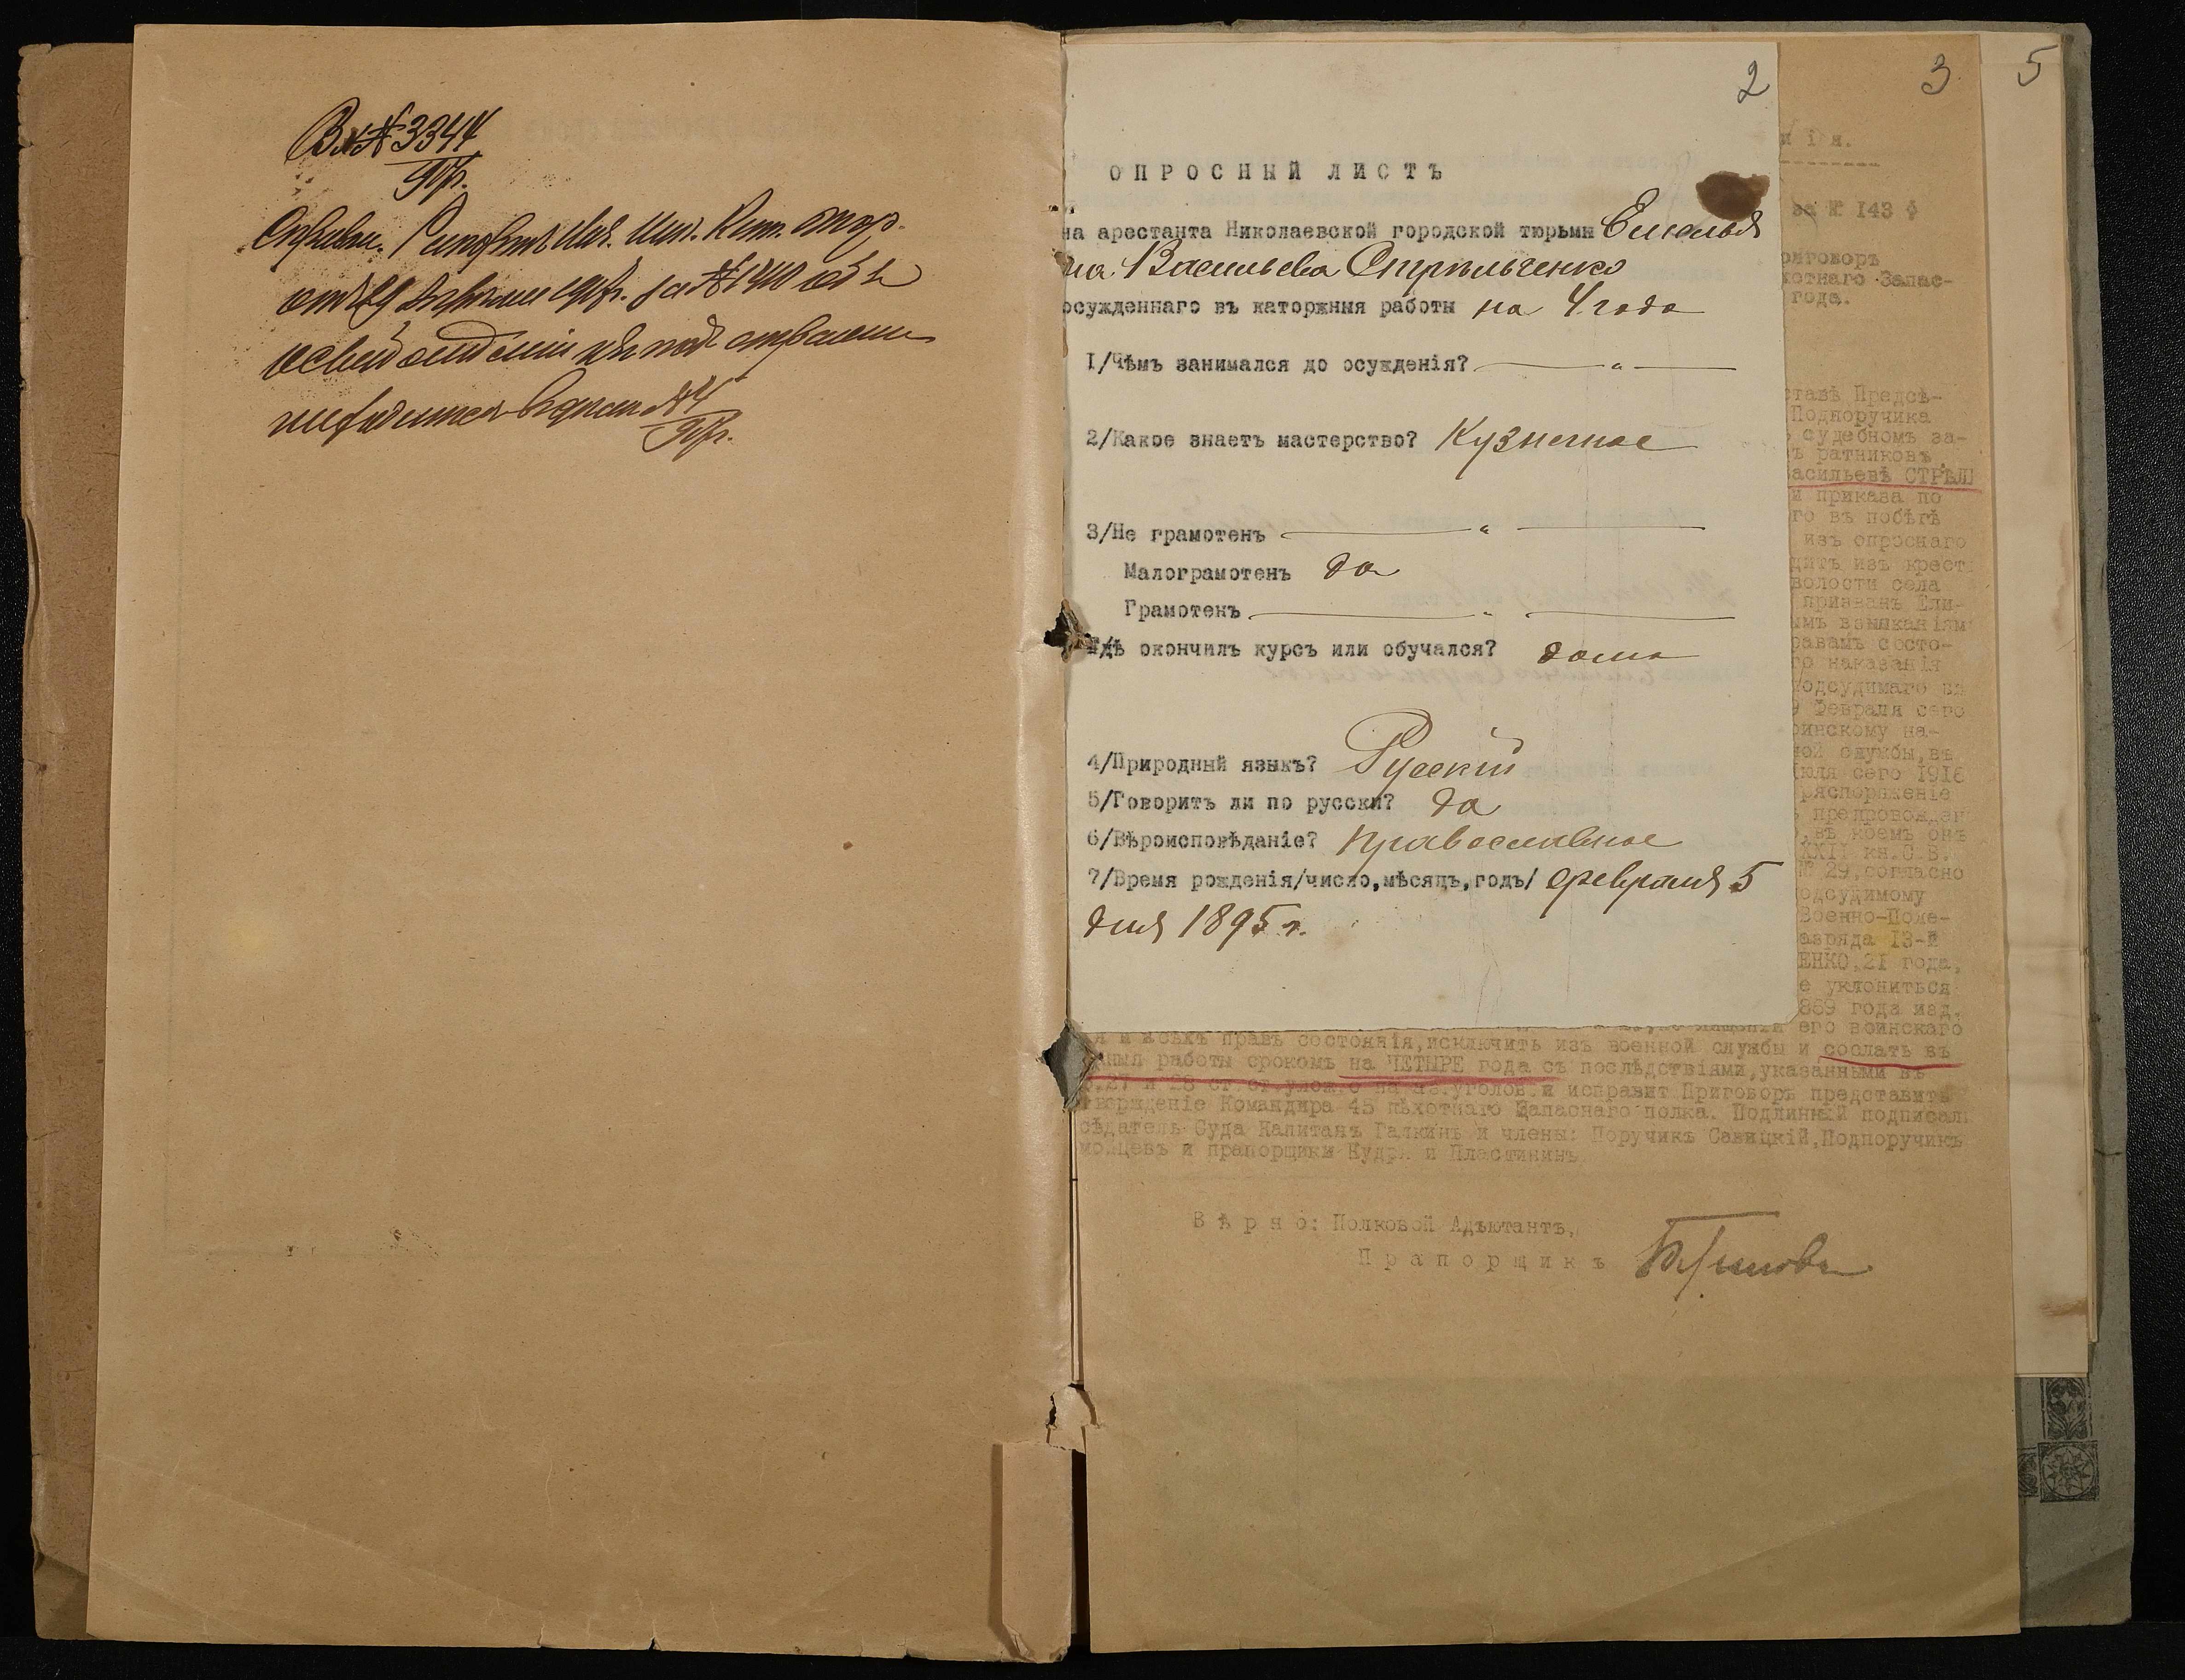 Вх № 3344
отъ
за № 1740
№ 4
2
ОПРОСНЫЙ ЛИСТЪ
на арестанта Николаевской городской тюрьмы Емелья
на Васильева Стрѣльченко
осужденнаго въ каторжныя работы на 4 года
I/Чѣмъ занимался до осужденія? — " —
2/Какое знаетъ мастерство? Кузнечное
3/Не грамотенъ — " —
Малограмотенъ да
Грамотенъ — " —
Гдѣ окончилъ курсъ или обучался? дома
4/Природный языкъ? Русскій
5/Говоритъ ли по русски? да
6/Вѣроисповѣданіе? православное
7/Время рожденія/число,мѣсяцъ,годъ/ февраля 5
дня 1895 г.
3
5
нія.
за № 143
риговоръ
хотнаго Запас-
года.
ставѣ Предсѣ-
Подпоручика
судебномъ за-
ъ ратниковъ
асильевѣ СТРѢЛЬ
и приказа по
го въ побѣгѣ
изъ опроснаго
дитъ изъ крест
волости села
призванъ Ели-
ымъ взысканіям
равамъ состо-
го наказанія
одсудимаго въ
февраля сего
оинскому на-
ной службы,въ
юля сего 1916
ряспоряженіе
препровожден
,въ коемъ онъ
XXII кн.С.В.
29,согласно
одсудимому
Военно-Поле-
азряда 13-й
ЕНКО,21 года,
е уклониться
869 года изд.
его воинскаго
я и всѣхъ правъ состоянія,исключить изъ военной службы и сослать въ
жныя работы срокомъ на ЧЕТЫРЕ года съ послѣдствіями,указанными въ
.27 и 28 ст. ст.улож.о нак.уголов.и исправит Приговоръ представить
тверждение Командира 45 пѣхотнаго Запаснаго полка. Подлинный подписали
сѣдатель Суда Капитанъ Галкинъ и члены: Поручикъ Савицкій,Подпоручикъ
мольцевъ и прапорщики Кудря и Пластининъ
Вѣрно: Полковой Адъютантъ,
Прапорщикъ